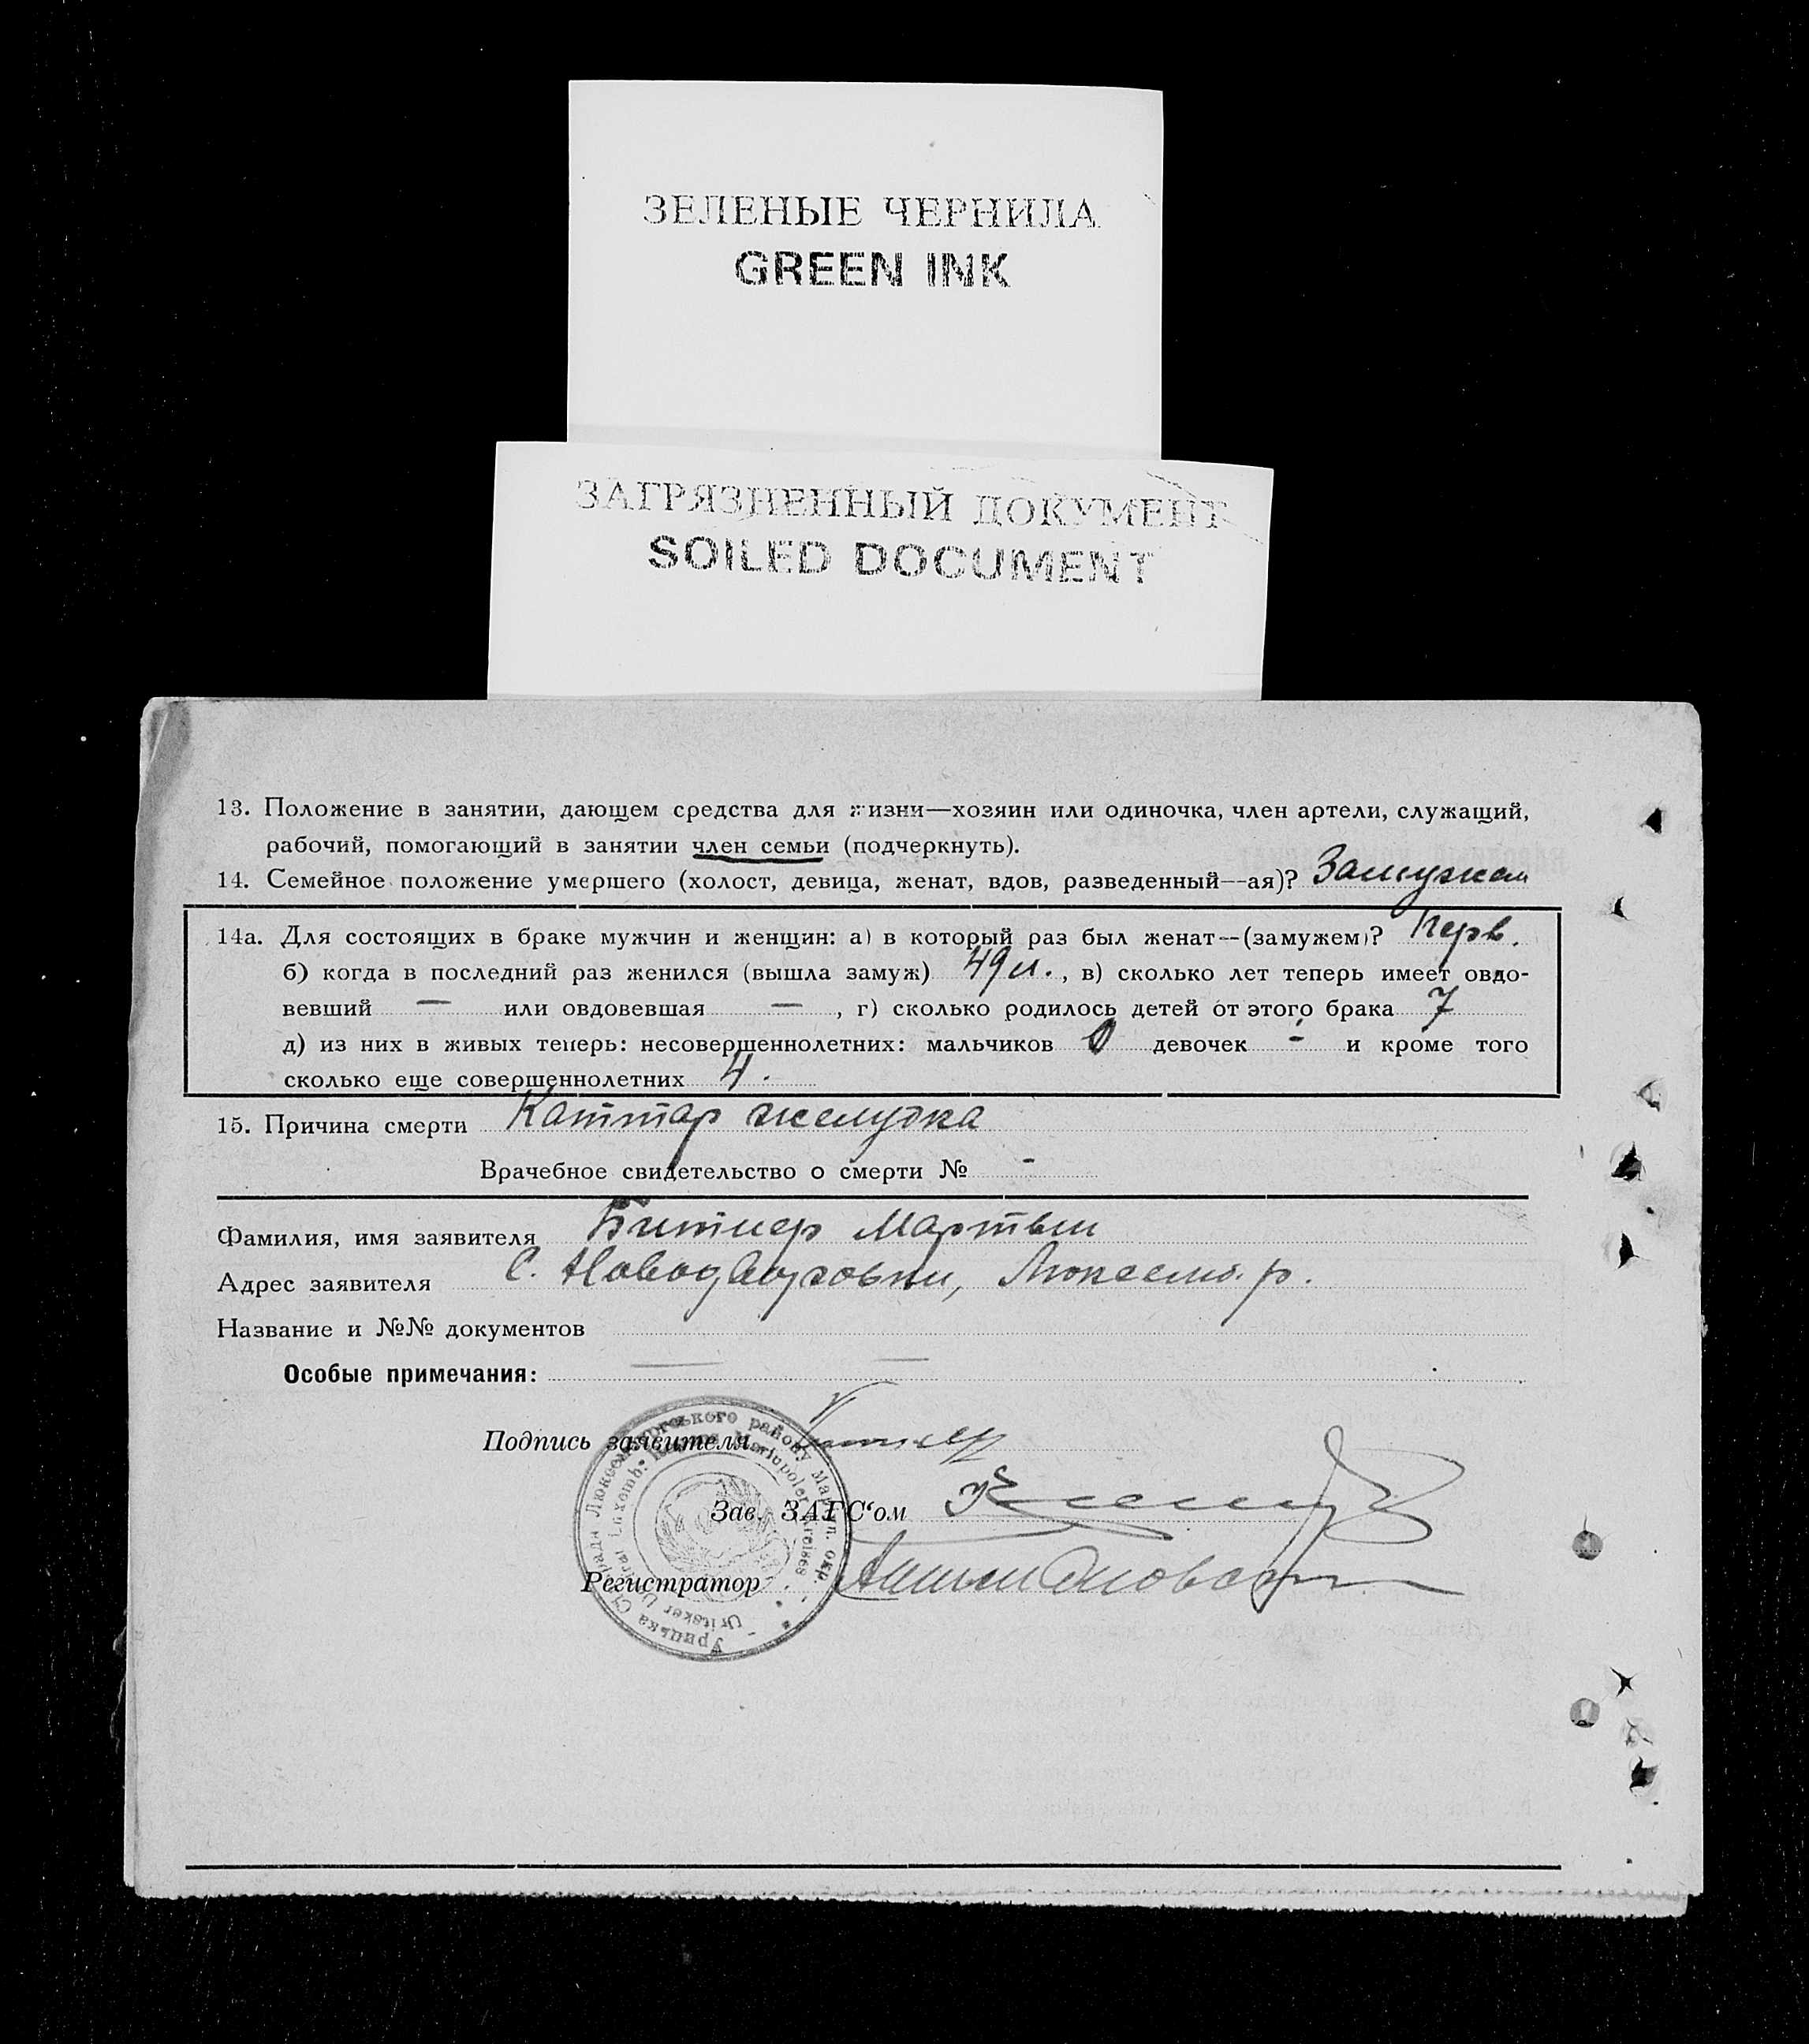 ЗЕЛЕНЫЕ ЧЕРНИЛА
GREEN INK
ЗАГРЯЗНЕННЫЙ ДОКУМЕНТ
SOILED DOCUMENT
13. Положение в занятии, дающем средства для жизни—хозяин или одиночка, член артели, служащий,
рабочий, помогающий в занятии член семьи (подчеркнуть).
14. Семейное положение умершего (холост, девица, женат, вдов, разведенный—ая)? Замужем
14а. Для состоящих в браке мужчин и женщин: а) в который раз был женат—(замужем)? Перв.
б) когда в последний раз женился (вышла замуж) 49 л., в) сколько лет теперь имеет овдо-
вевший — или овдовевшая — , г) сколько родилось детей от этого брака 7
д) из них в живых теперь: несовершеннолетних: мальчиков 0 девочек - и кроме того
сколько еще совершеннолетних 4.
15. Причина смерти Каттар желудка
Врачебное свидетельство о смерти № -
Фамилия, имя заявителя Битнер Мартын
Адрес заявителя С. р.
Название и №№ документов
Особые примечания: — —
Подпись заявителя
Зав. ЗАГС'ом
Регистратор